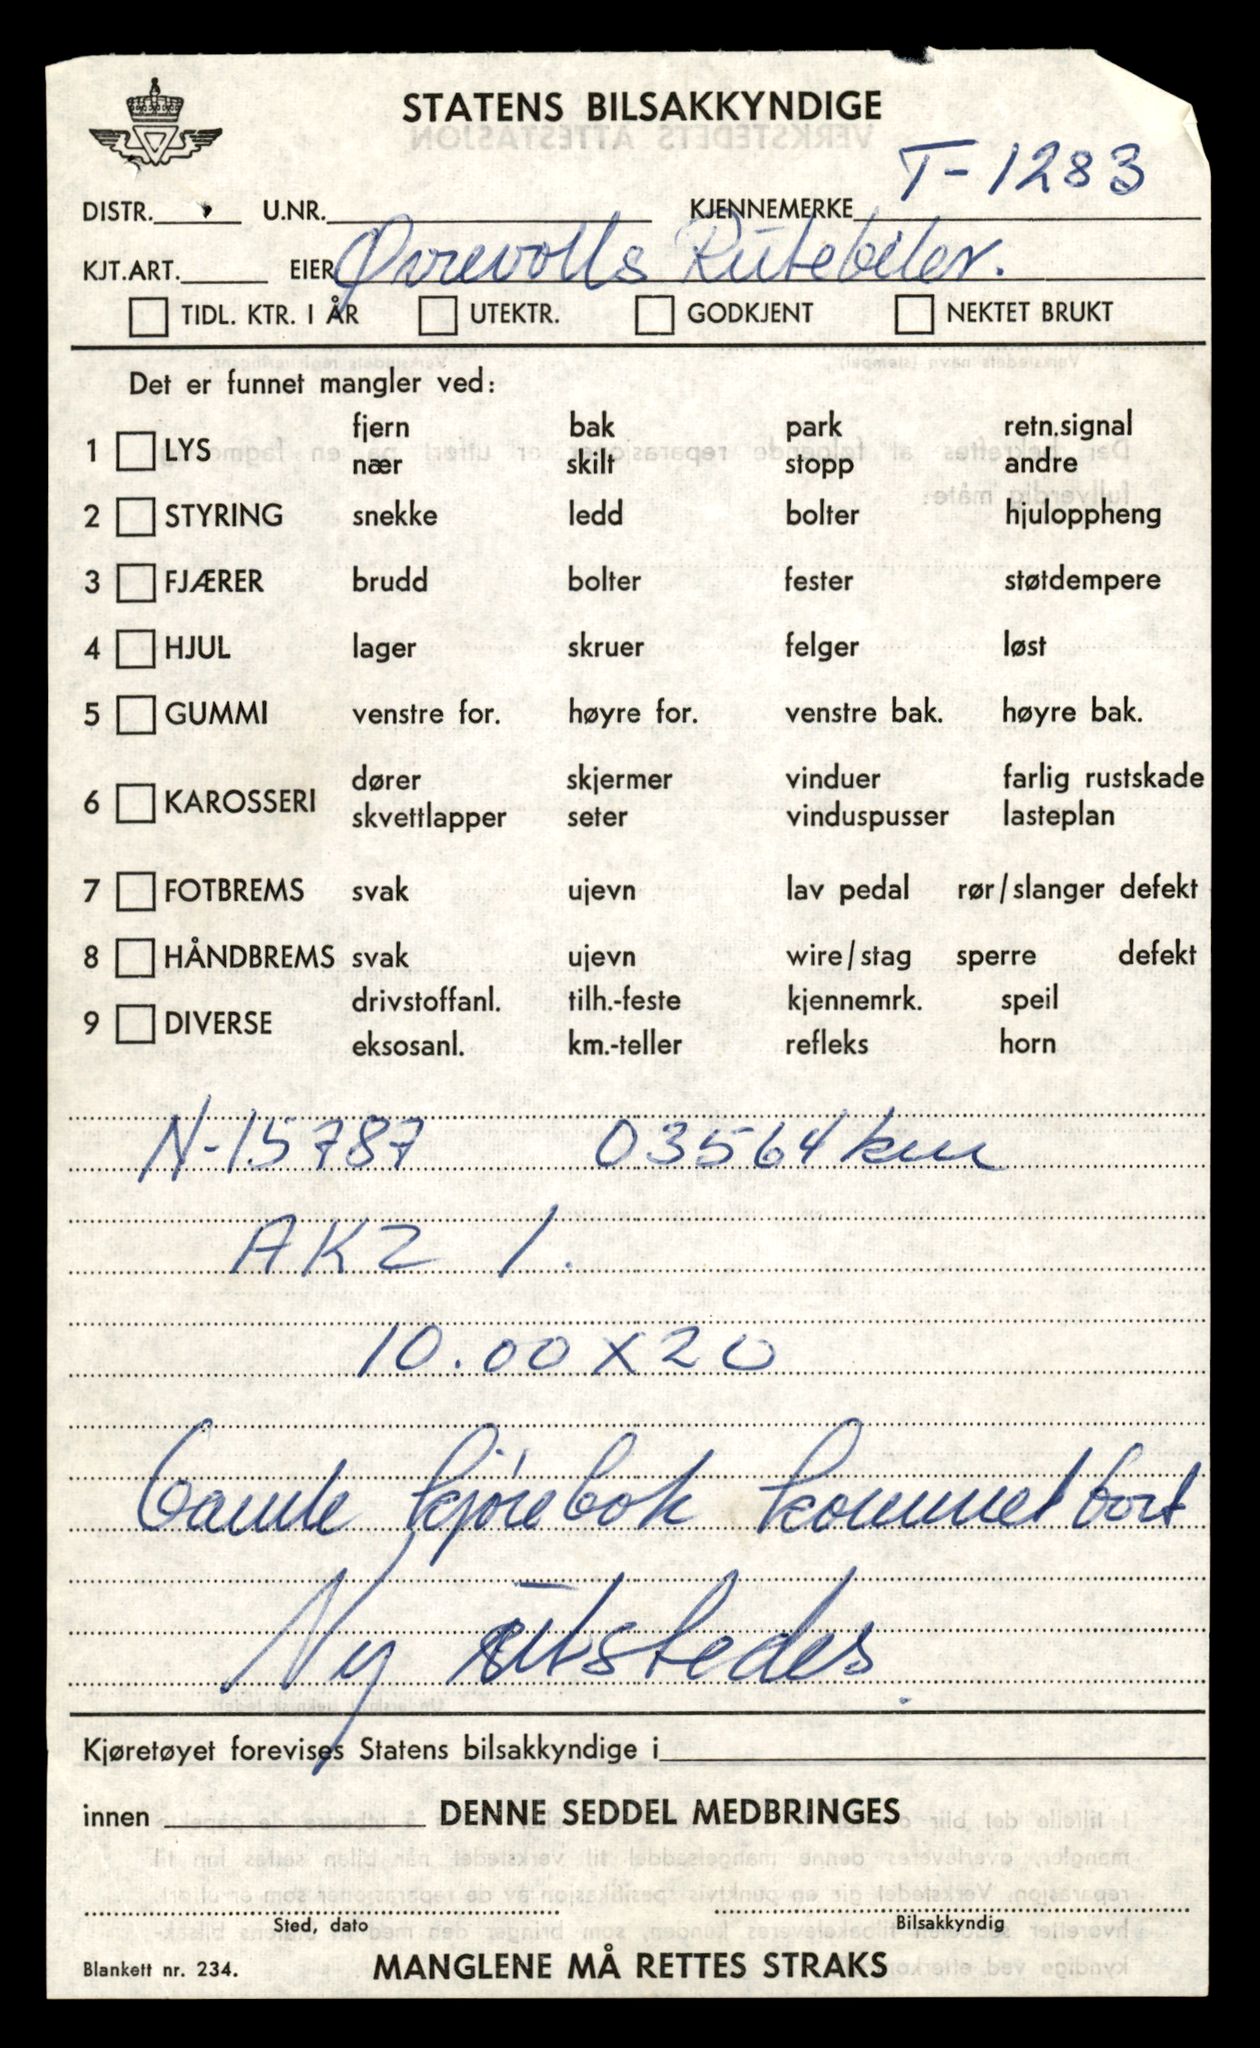 STATENS BILSAKKYNDIGE
T-1283
DISTR. U.NR. KJENNEMERKE
KJT.ART. EIER Øvrevolls Rutebiler.
TIDL. KTR. I ÅR UTEKTR. GODKJENT NEKTET BRUKT
Det er funnet mangler ved:
fjern bak park retn.signal
1 LYS
nær skilt stopp andre
2 STYRING snekke ledd bolter hjuloppheng
3 FJÆRER brudd bolter fester støtdempere
4 HJUL lager skruer felger løst
5 GUMMI venstre for. høyre for. venstre bak. høyre bak.
dører skjermer vinduer farlig rustskade
6 KAROSSERI
skvettlapper seter vinduspusser lasteplan
7 FOTBREMS svak ujevn lav pedal rør/slanger defekt
8 HÅNDBREMS svak ujevn wire/stag sperre defekt
drivstoffanl. tilh.-feste kjennemrk. speil
9 DIVERSE
eksosanl. km.-teller refleks horn
N-15787 03564 km
AKZ 1.
10.00 x 20
Gamle kjørebok kommet bort
Ny utstedes.
Kjøretøyet forevises Statens bilsakkyndige i
innen DENNE SEDDEL MEDBRINGES
Sted, dato Bilsakkyndig
Blankett nr. 234. MANGLENE MÅ RETTES STRAKS